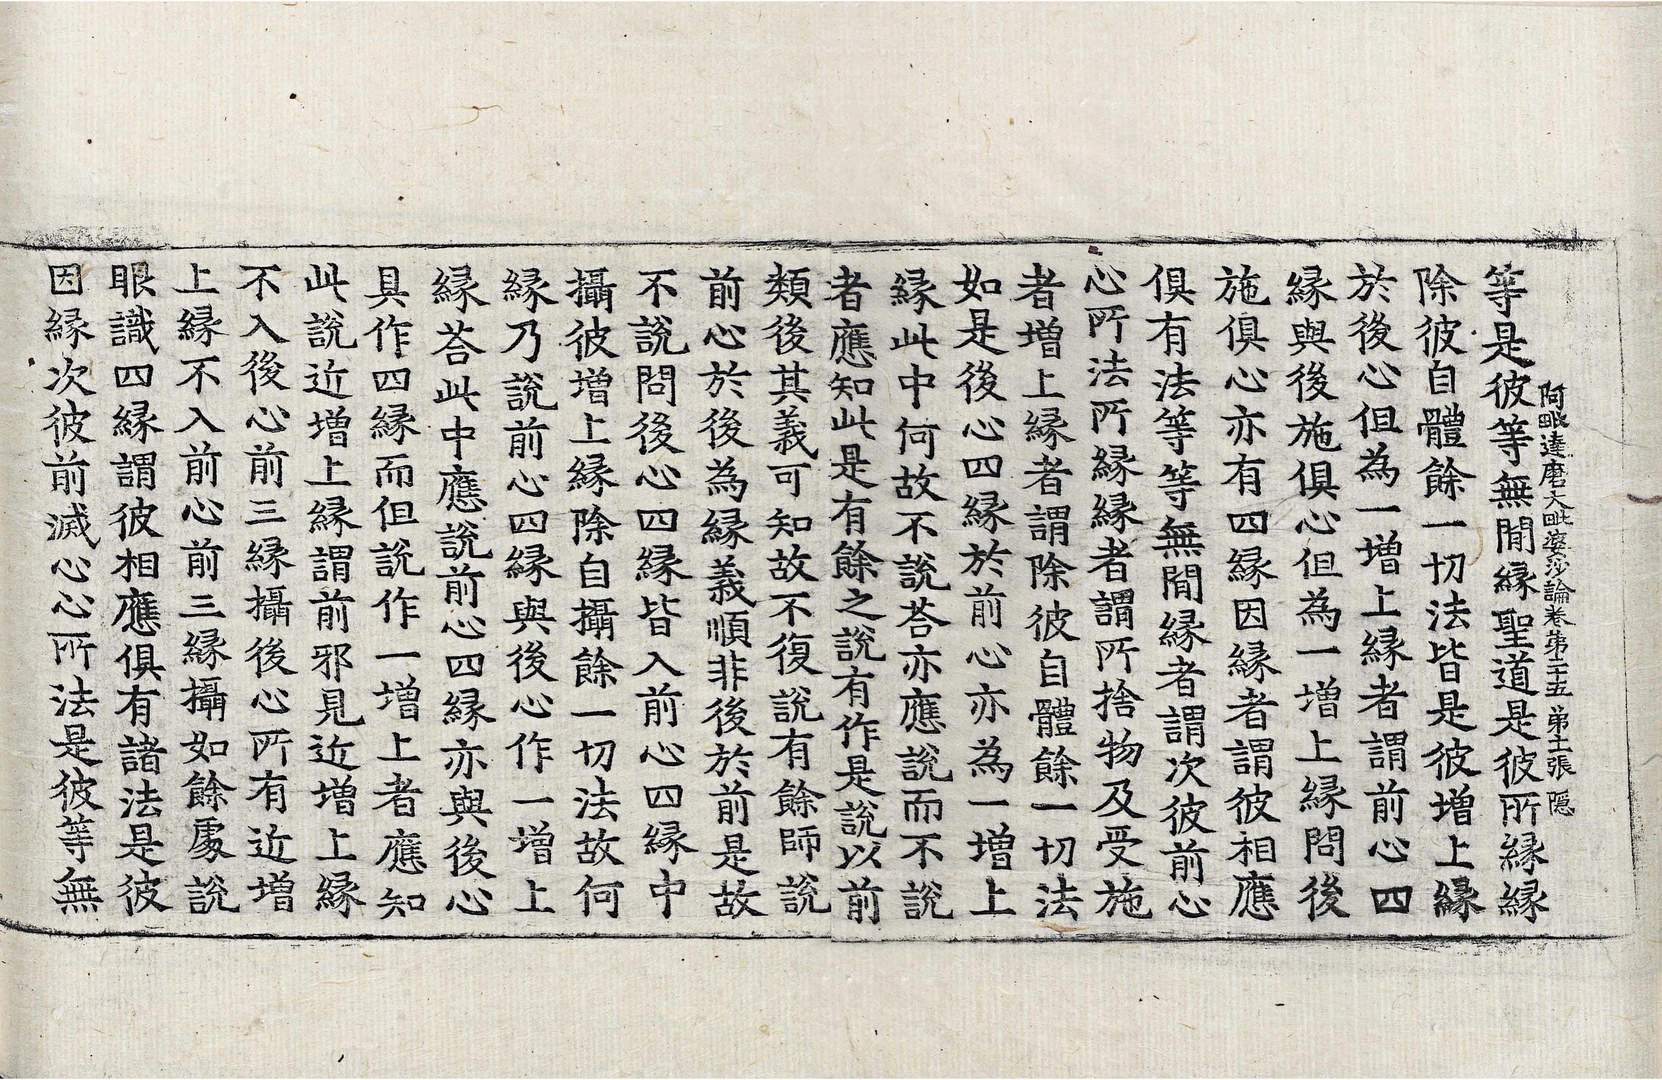 阿毗達磨大毗婆莎論卷苐二十五 苐十二張 隱
等是彼等無閒縁聖道是彼所縁縁
除彼自體餘一切法皆是彼增上縁
於後心但為一增上縁者謂前心四
縁與後施俱心但為一增上縁問後
施俱心亦有四縁因縁者謂彼相應
俱有法等等無閒縁者謂次彼前心
心所法所縁縁者謂所捨物及受施
者增上縁者謂除彼自體餘一切法
如是後心四縁於前心亦為一增上
縁此中何故不說荅亦應說而不說
者應知此是有餘之說有作是說以前
類後其義可知故不復說有餘師說
前心於後為縁義順非後於前是故
不說問後心四縁皆入前心四縁中
攝彼增上縁除自攝餘一切法故何
縁乃說前心四縁與後心作一增上
縁荅此中應說前心四縁亦與後心
具作四縁而但說作一增上者應知
此說近增上縁謂前邪見近增上縁
不入後心前三縁攝後心所有近增
上縁不入前心前三縁攝如餘處說
眼識四縁謂彼相應俱有諸法是彼
因縁次彼前滅心心所法是彼等無